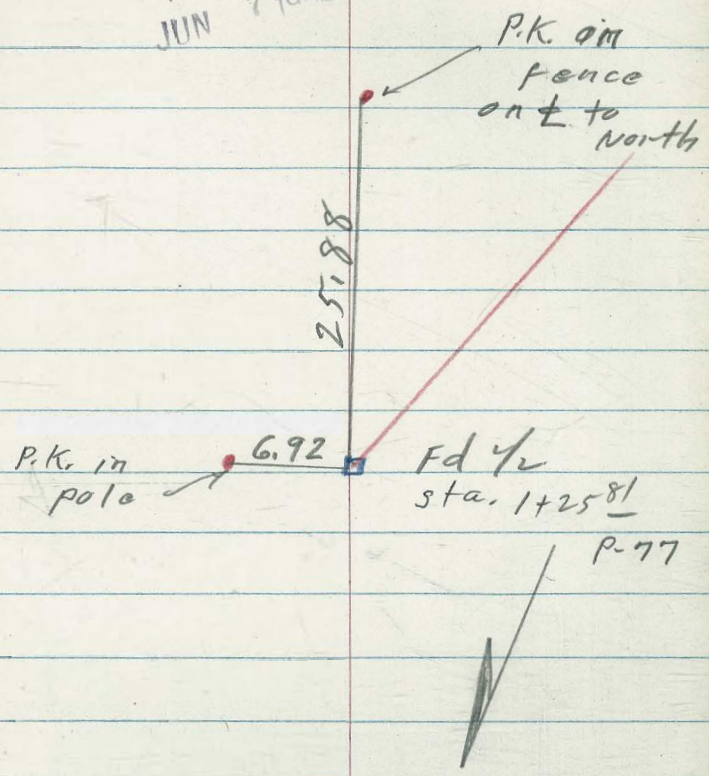 JUN
P.K. in
fence
on ℄ to
North
25.88
6.92
P.K. in
pole
Fd 1/2
sta. 1+25 81
P-77